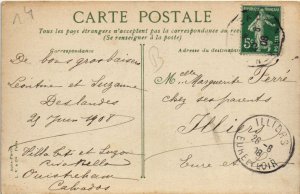 14
CARTE POSTALE
Tous les pays étrangers n'acceptent pas la correspondance au recto.
(Se renseigner à la Poste)
Correspondance
De bons gros baisers
Léontine et Suzanne
Deslandes
25 Juin 1908
Villa et Suzon
Ouistreham
Calvados
Adresse du destinataire
Melle Marguerite Ferré
chez ses parents
Illiers
Eure et
ILLIERS
28-6
08
EURE-ET-LOIR